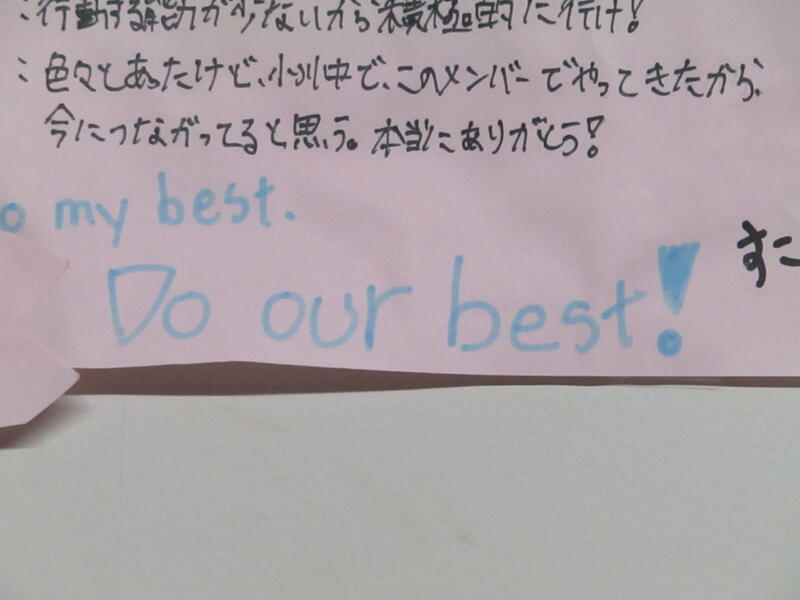 ：行動する能力が少ないから積極的に行け!
：色々とあったけど、小川中で、このメンバーでやってきたから、
今につながってると思う。本当にありがとう!
o my best.
Do our best!
すこ